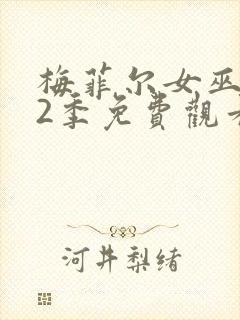 梅菲尔女巫
2季免費觀看
河井梨绪